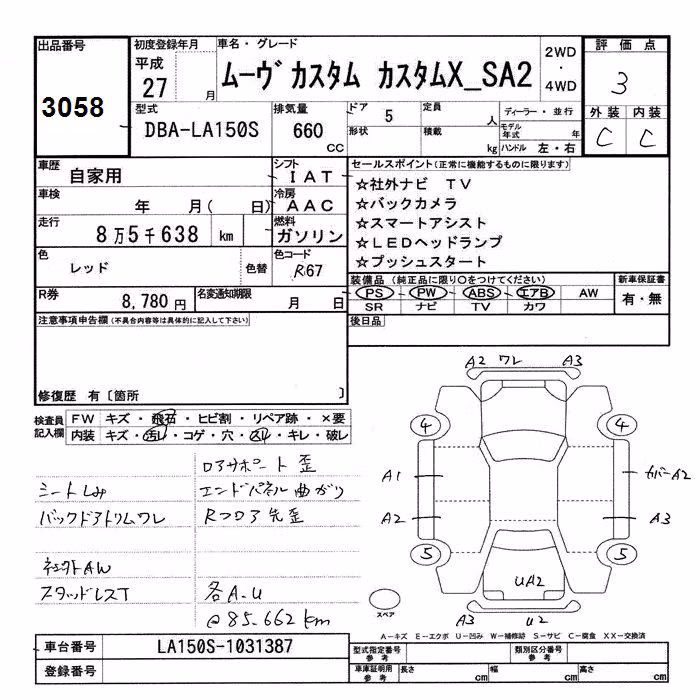 出品番号
3058
初度登録年月
平成
27 月
車名・グレード
ムーヴ カスタム カスタムX_SA2
2WD
・
4WD
評価点
3
外装 内装
C C
型式
DBA-LA150S
排気量
660
CC
ドア 5
形状
定員 人
積載 kg
ディーラー・並行
モデル年式 年
ハンドル 左・右
車歴
自家用
車検
年 月( 日)
走行
8万5千638 km
色
レッド
色替
R券
8,780円
名変通知期限
月 日
シフト
IAT
冷房
AAC
燃料
ガソリン
色コード
R67
セールスポイント(正常に機能するものに限ります)
☆社外ナビ TV
☆バックカメラ
☆スマートアシスト
☆LEDヘッドランプ
☆プッシュスタート
装備品 (純正品に限り○をつけてください)
PS PW ABS エアB AW
SR ナビ TV カワ
新車保証書
有・無
後日品
注意事項申告欄(不具合内容等は具体的に記入して下さい)
修復歴 有〔箇所 〕
検査員
記入欄
FW キズ・飛石・ヒビ割・リペア跡・×要
内装 キズ・汚レ・コゲ・穴・スレ・キレ・破レ
ロアサポート 歪
シートしみ
エンドパネル 曲がり
バックドアトリムワレ
Rフロア先歪
社外AW
スタッドレスT
各A.U
@85.662km
A2 ワレ A3
4 4
A1
カバーA2
A2
A3
5 5
UA2
A3 U2
スペア
A-キズ E-エクボ U-凹み W-補修跡 S-サビ C-腐食 XX-交換済
車台番号
LA150S-1031387
登録番号
型式指定番号
参考
類別区分番号
参考
車庫証明用
参考
長さ cm
幅 cm
高さ cm